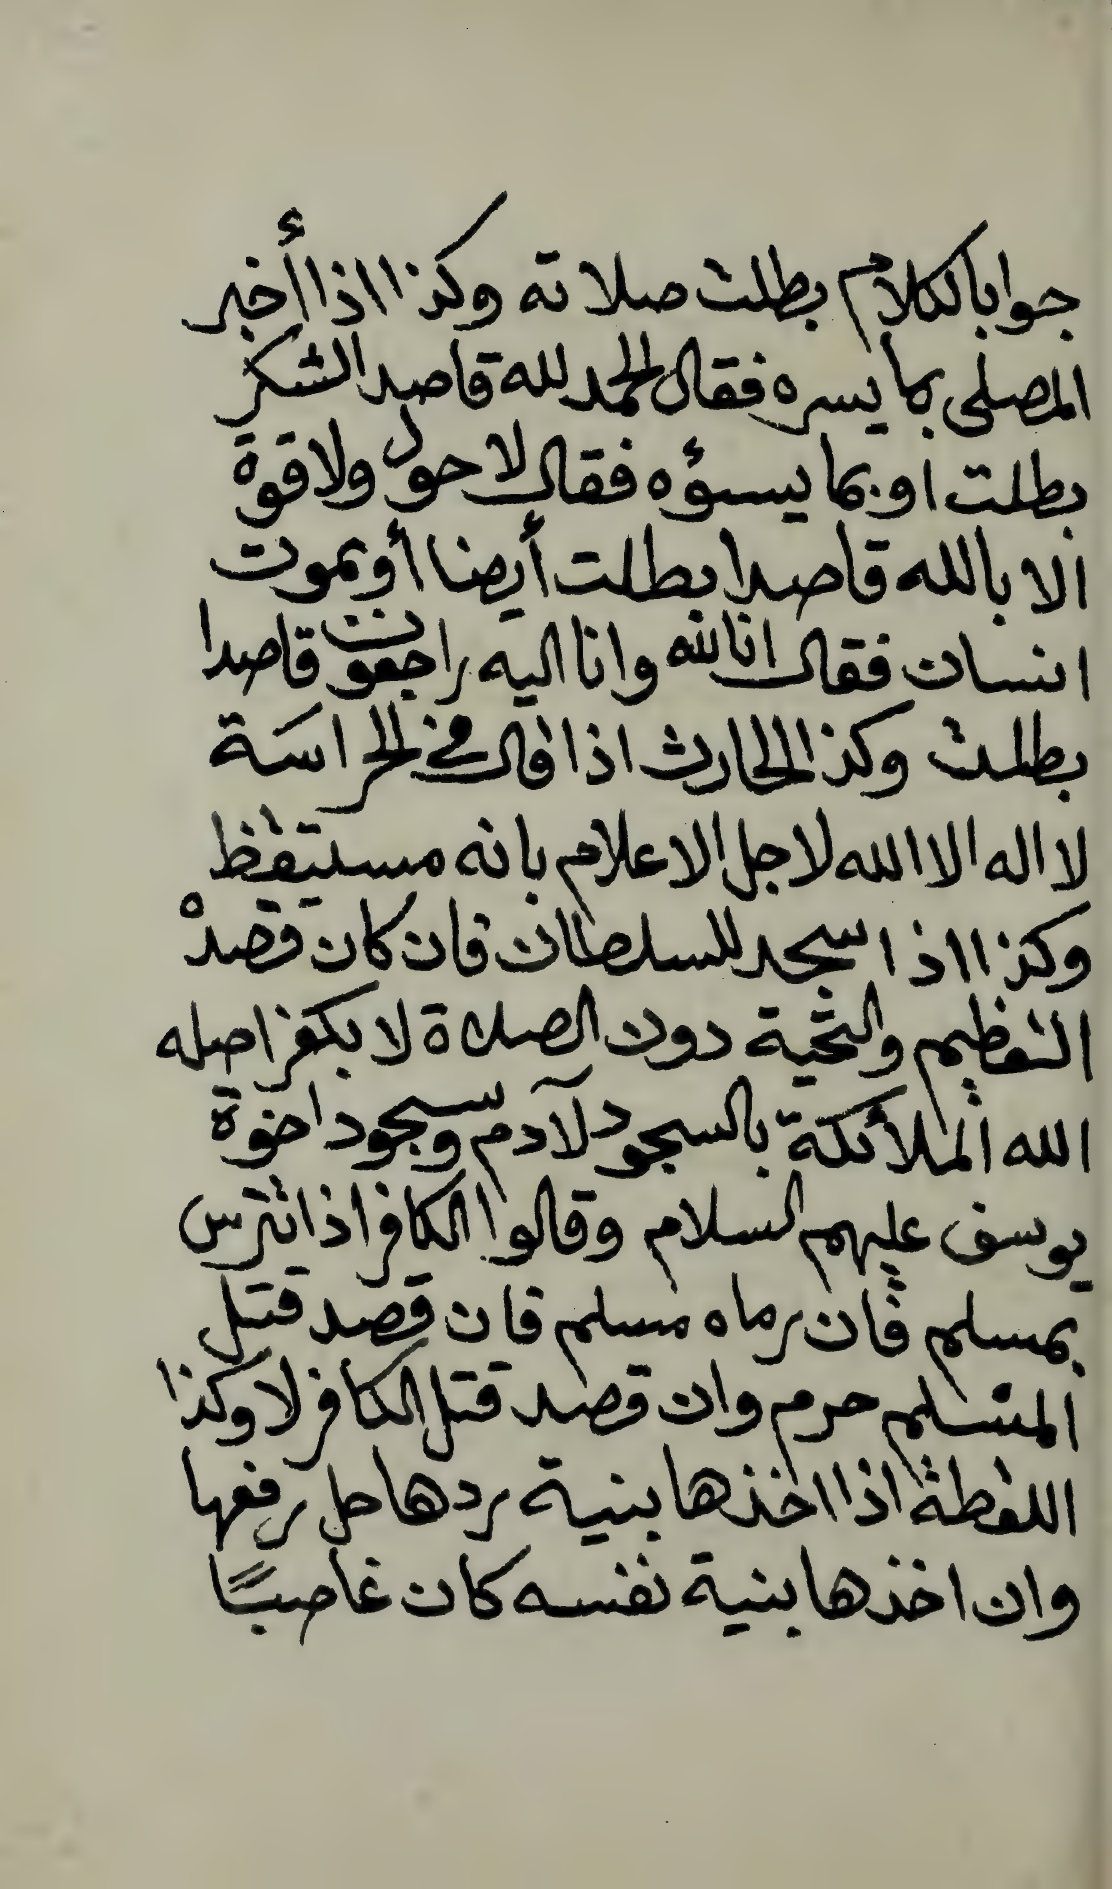 جوابا بالكلام بطلت صلاته وكذا اذا أخبر
المصلى بما يسره فقال الحمد لله قاصدا الشكر
بطلت او بما يسؤه فقال لا حول ولا قوة
الا بالله قاصدا بطلت أيضا أو بموت
انسان فقال انا لله وانا اليه راجعون قاصدا
بطلت وكذا الحارث اذا قال في الحراسة
لا اله الا الله لاجل الاعلام بانه مستيقظ
وكذا اذا سجد للسلطان فان كان قصده
التعظيم والتحية دون الصلاة لا يكفر اصله
الله الملائكة بالسجود لآدم وسجود اخوة
يوسف عليهم السلام وقالوا الكافر اذا تترس
بمسلم فان رماه مسلم فان قصد قتل
المسلم حرم وان قصد قتل الكافر لا وكذا
اللقطة اذا اخذها بنية ردها حل رفعها
وان اخذها بنية نفسه كان غاصبًا